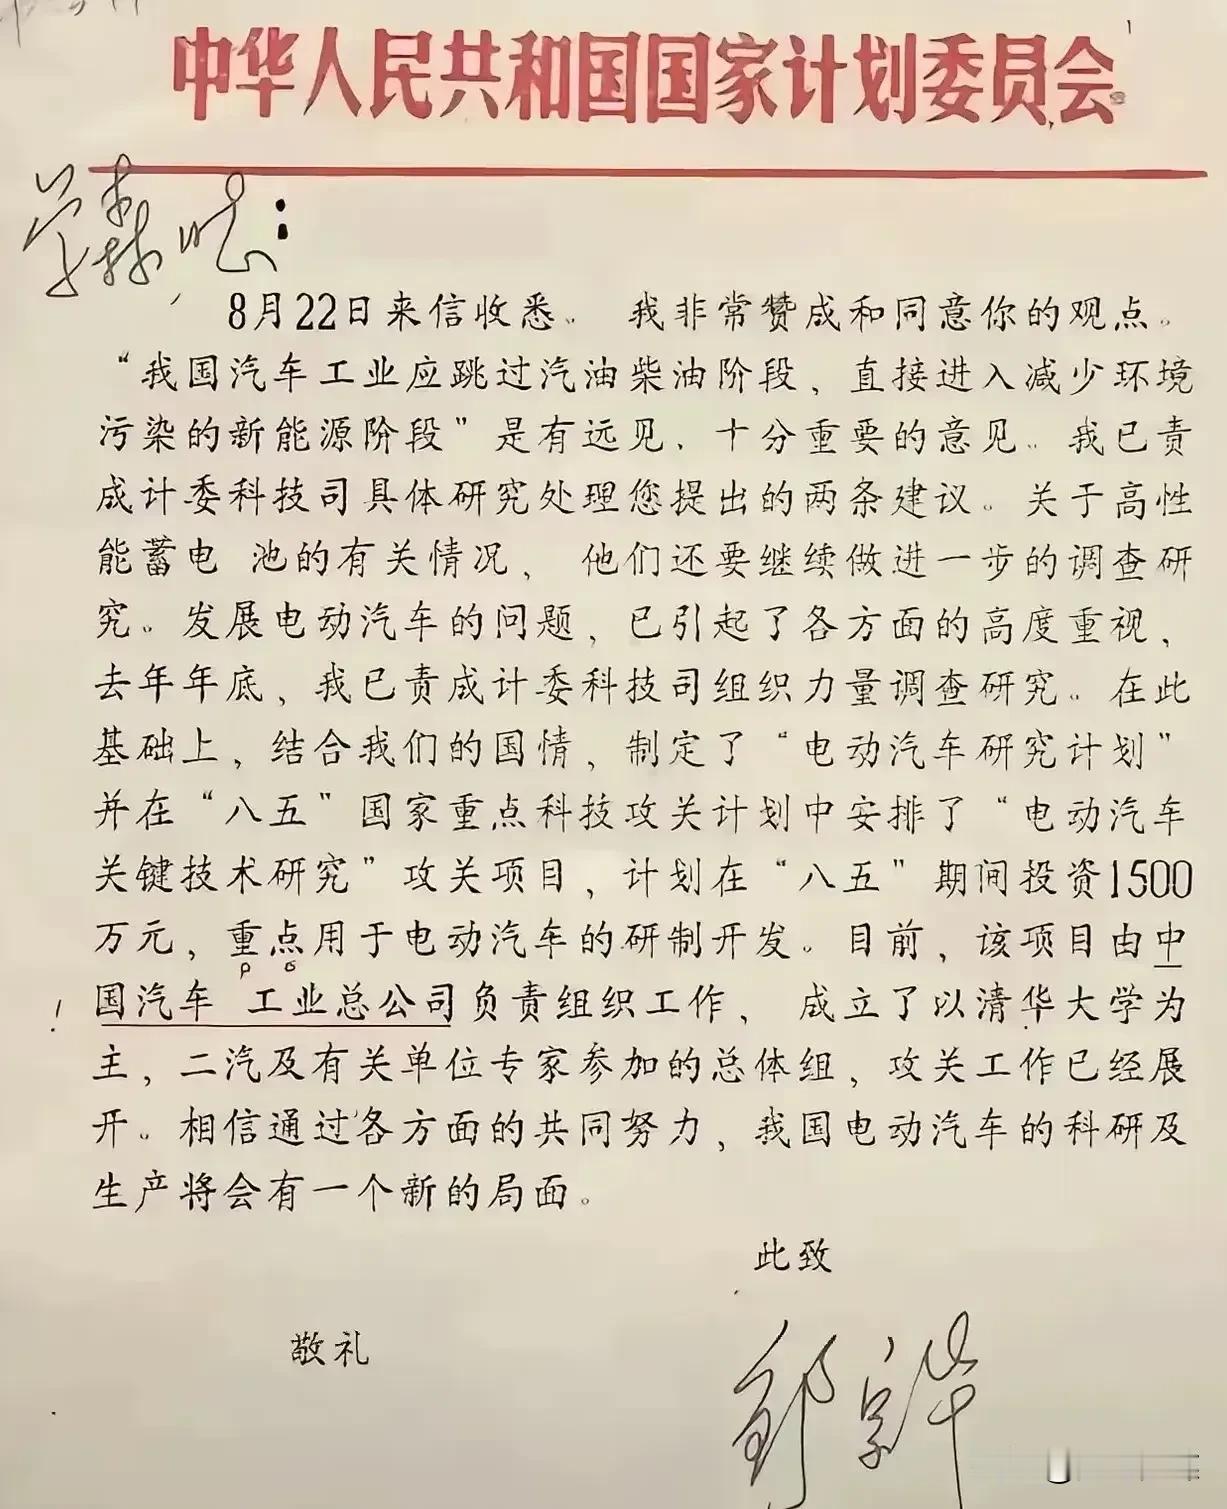 中华人民共和国国家计划委员会
学森同志：
8月22日来信收悉。 我非常赞成和同意你的观点。
“我国汽车工业应跳过汽油柴油阶段、直接进入减少环境
污染的新能源阶段”是有远见、十分重要的意见。我已责
成计委科技司具体研究处理您提出的两条建议。关于高性
能蓄电 池的有关情况、 他们还要继续做进一步的调查研
究。发展电动汽车的问题，已引起了各方面的高度重视、
去年年底、我已责成计委科技司组织力量调查研究。在此
基础上，结合我们的国情，制定了“电动汽车研究计划”
并在“八五”国家重点科技攻关计划中安排了“电动汽车
关键技术研究”攻关项目，计划在“八五”期间投资1500
万元，重点用于电动汽车的研制开发。目前，该项目由中
国汽车 工业总公司负责组织工作、 成立了以清华大学为
主，二汽及有关单位专家参加的总体组，攻关工作已经展
开。相信通过各方面的共同努力，我国电动汽车的科研及
生产将会有一个新的局面。
此致
敬礼
邹家华